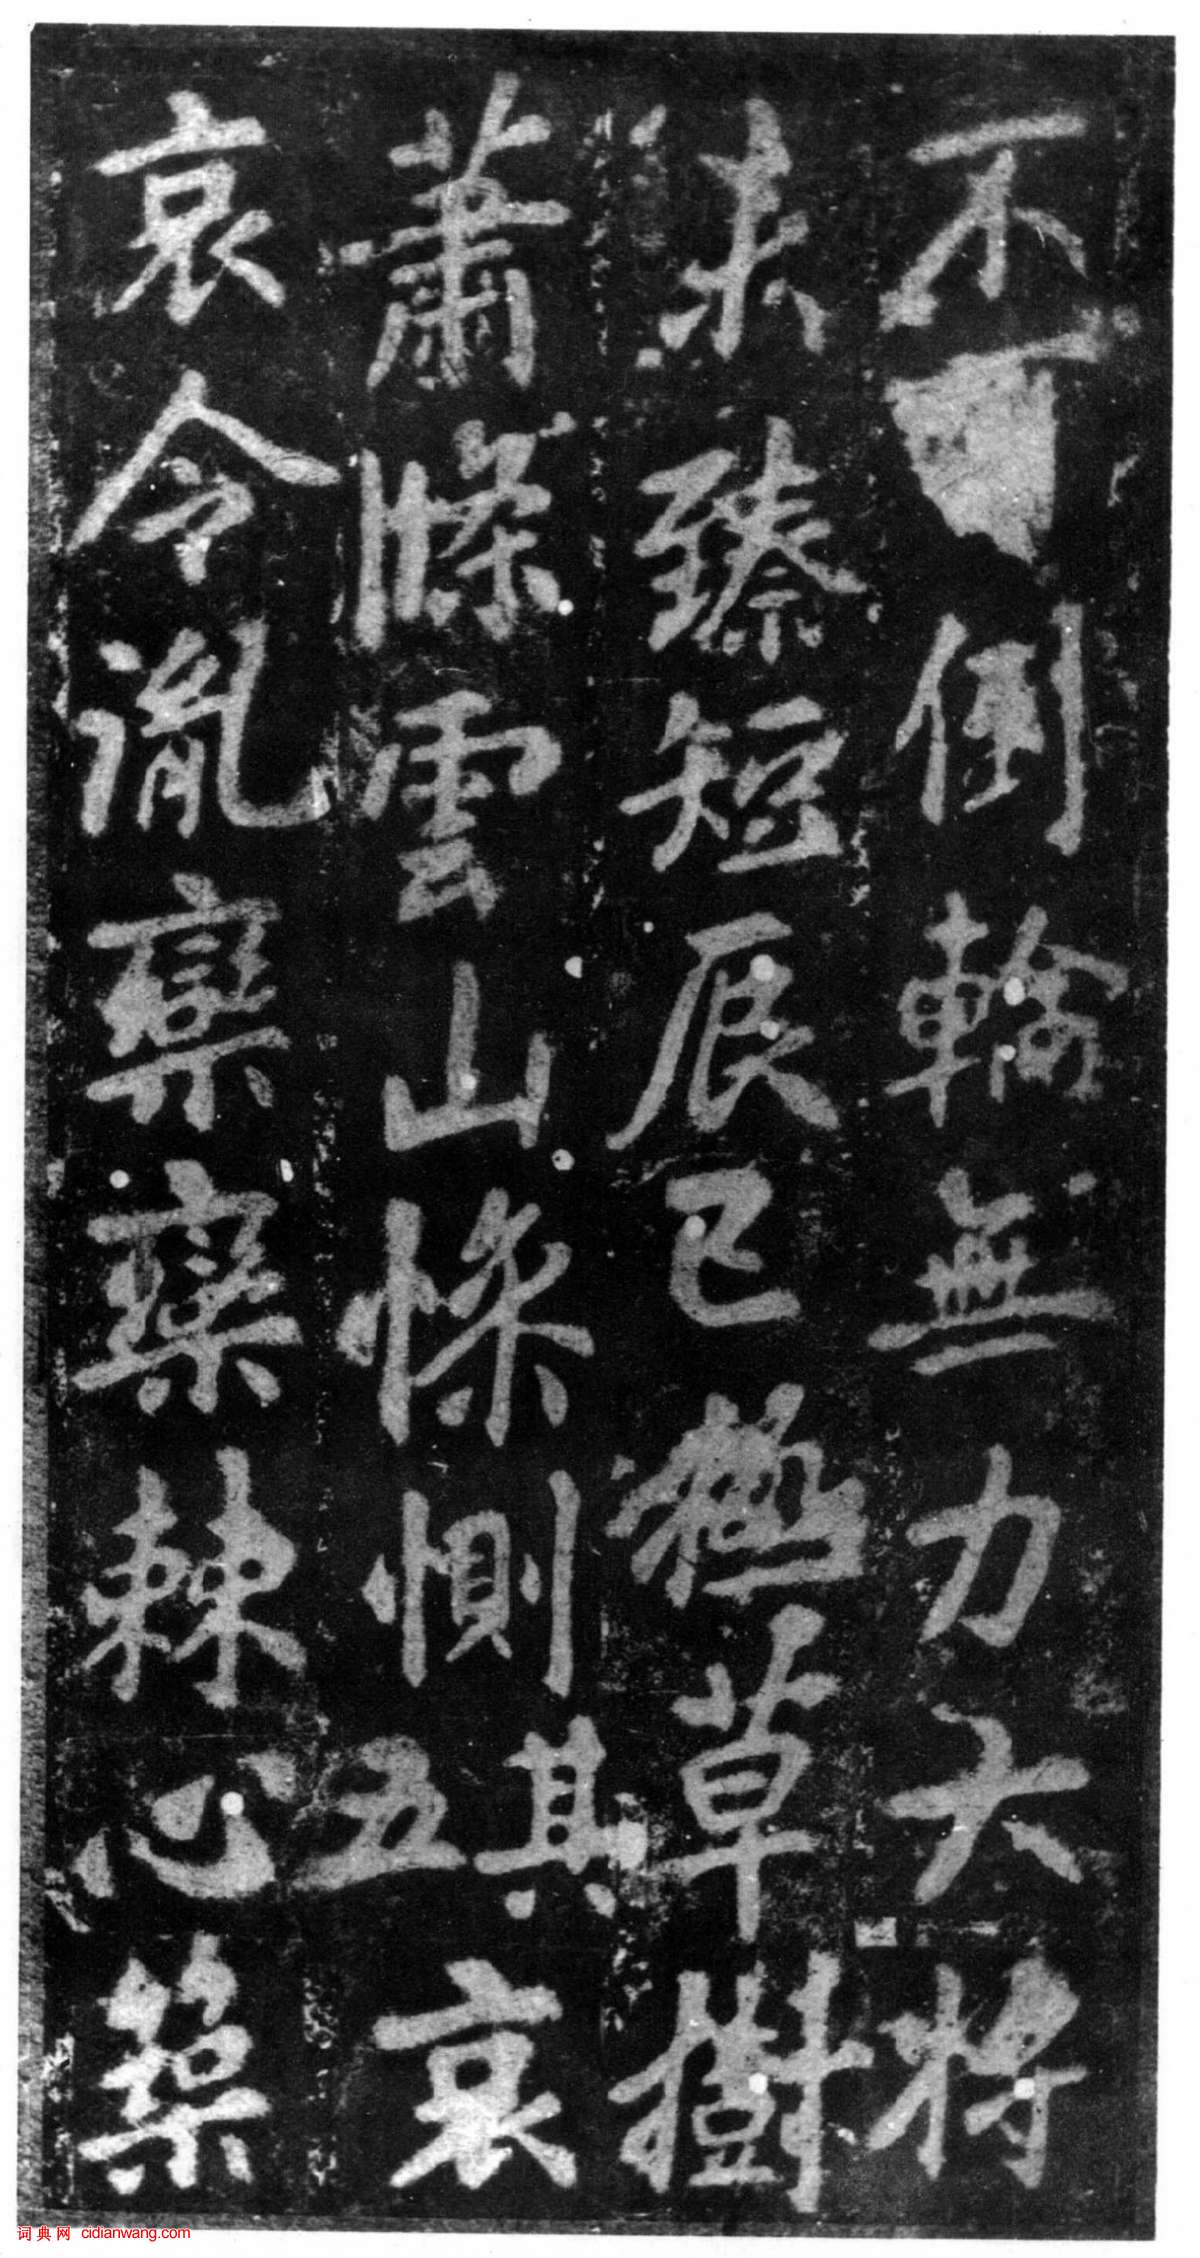 不倒輪無力大將
未臻短辰已極草樹
蕭條雲山慘惻其五哀
哀令胤欒欒棘心築
词典网 cidianwang.com